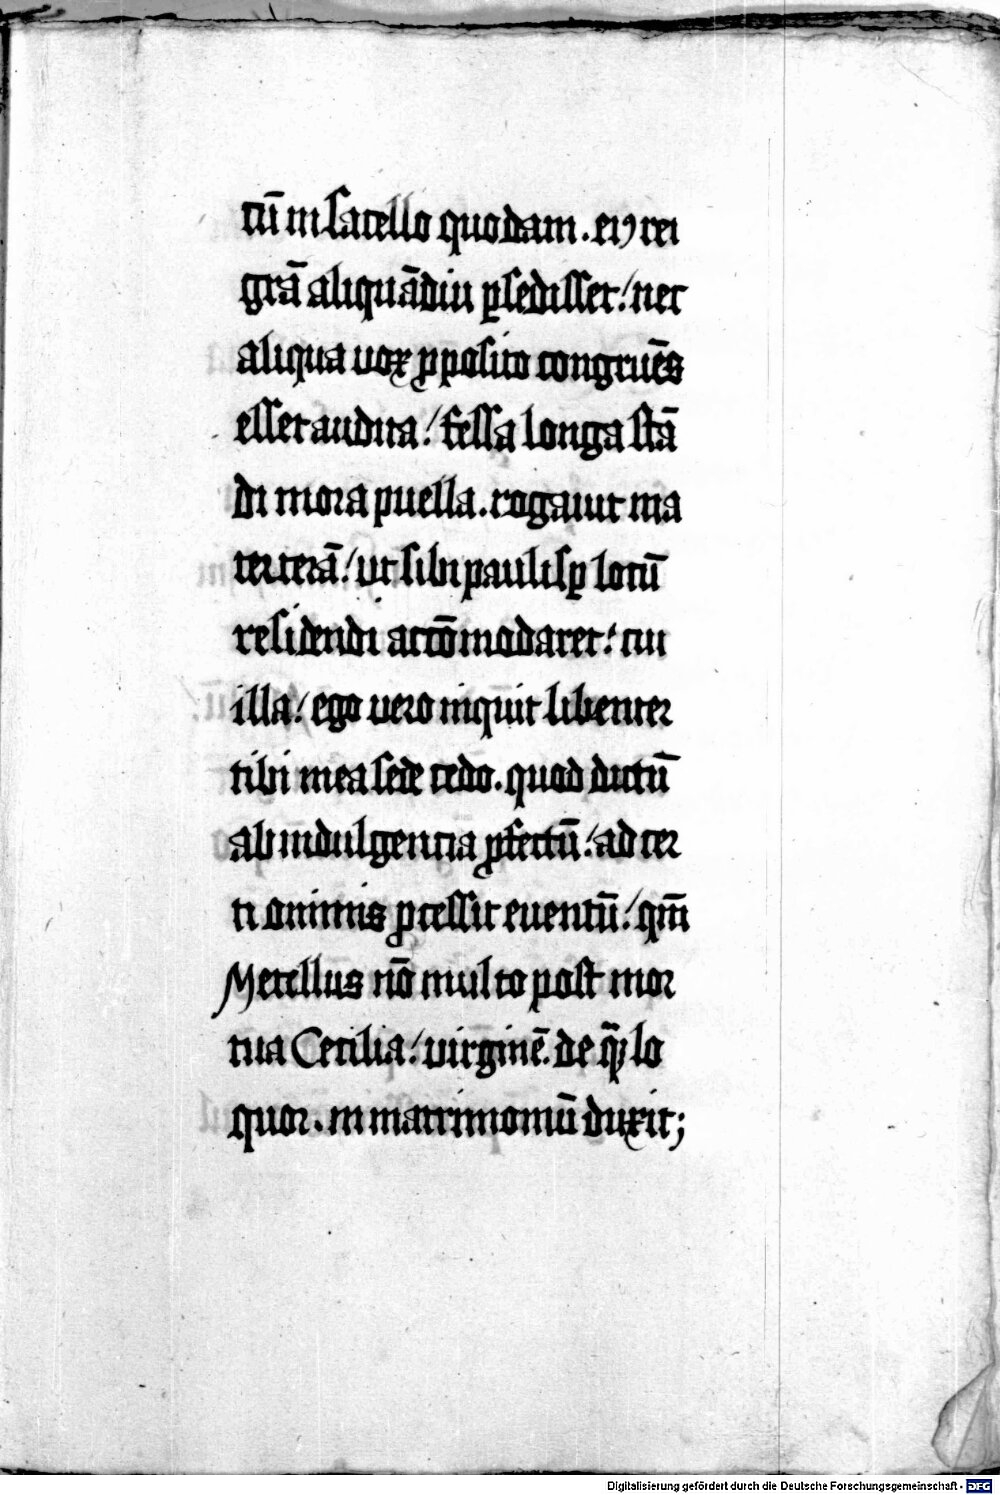 cū in sacello quodam . eiꝯ rei
grā aliquādiu ꝑsedisset / nec
aliqua vox ꝓposito congruēs
esset audita / fessa longa stā
di mora puella . rogauit ma
terterā / vt sibi paulisꝑ locū
residendi accōmodaret / cui
illa / ego vero inquit libenter
tibi mea sede cedo . quod dictū
ab indulgencia ꝓfectū / ad cer
ti ominis ꝓcessit euentū / qm̄
Metellus nō multo post mor
tua Cecilia / virginē de qͣ lo
quor . in matrimoniū duxit ;
Digitalisierung gefördert durch die Deutsche Forschungsgemeinschaft - DFG